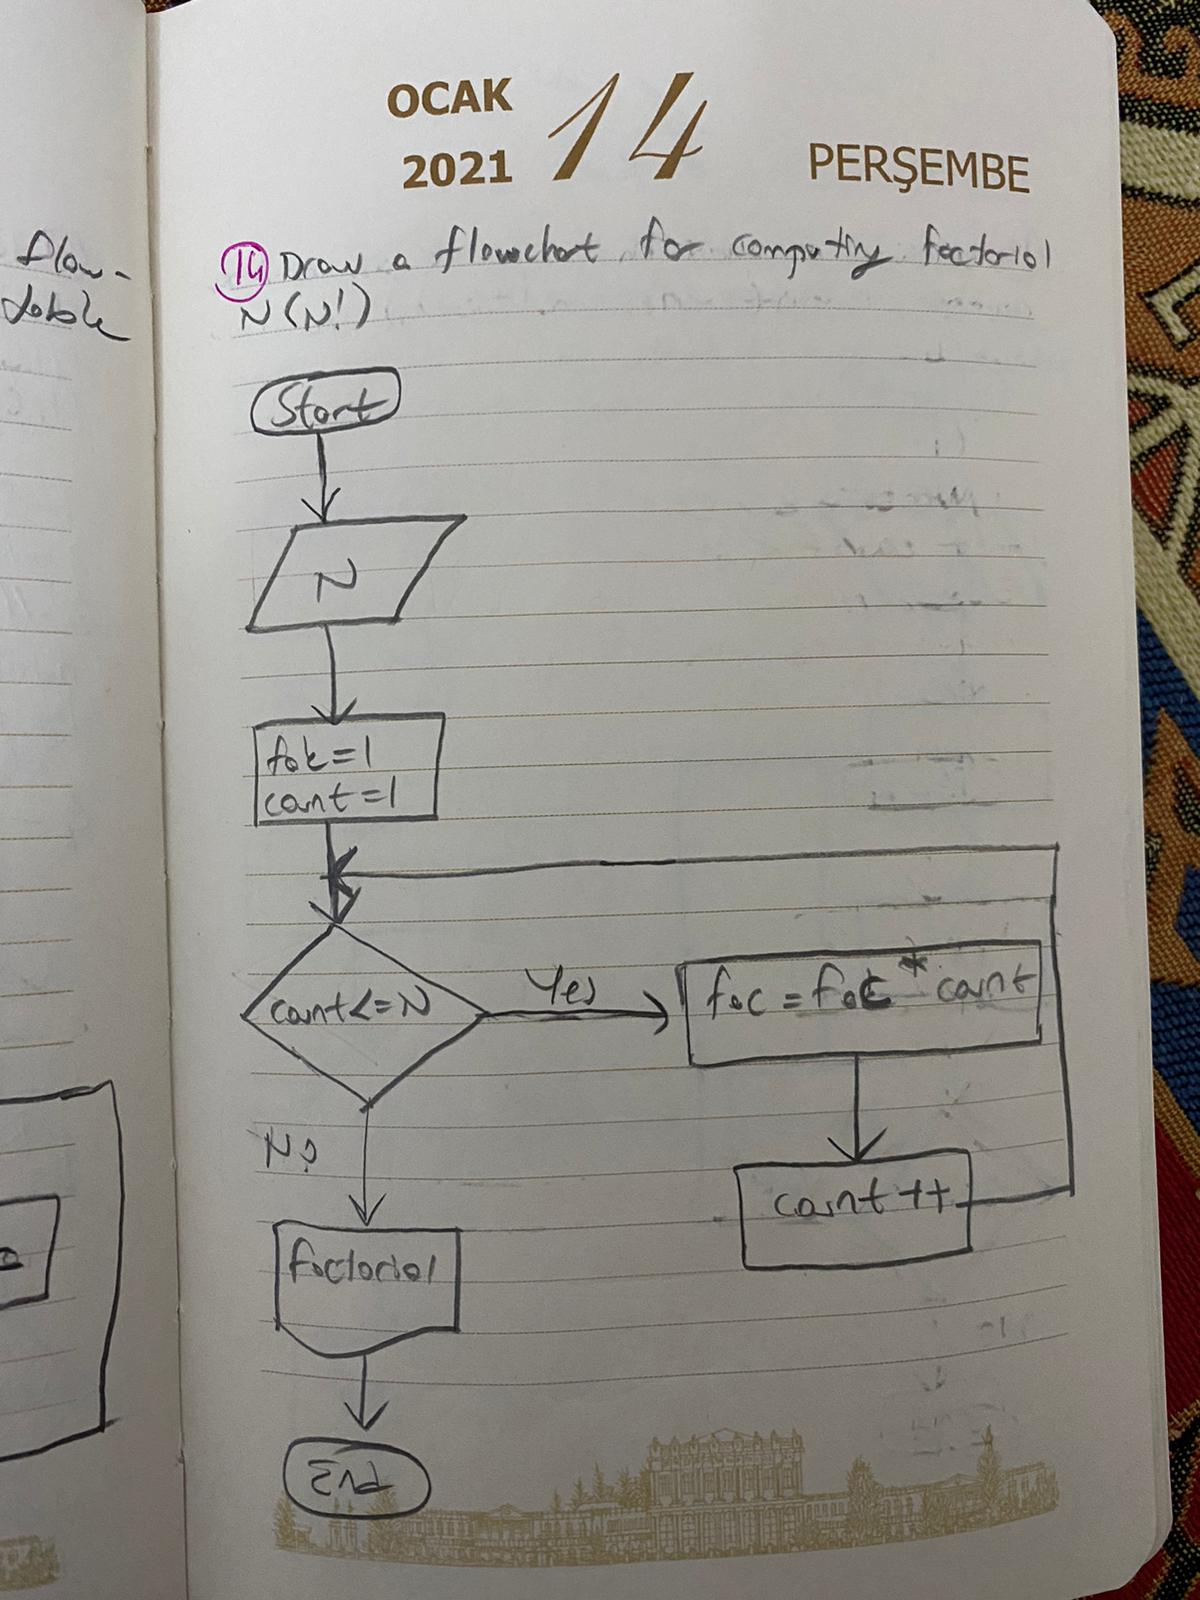 OCAK
2021
14
PERŞEMBE
flow-
14 Draw a flowchart for computing factorial
N (N!)
Start
N
fak=1
count=1
count<=N
Yes
fac = fac * count
No
count ++
factorial
End